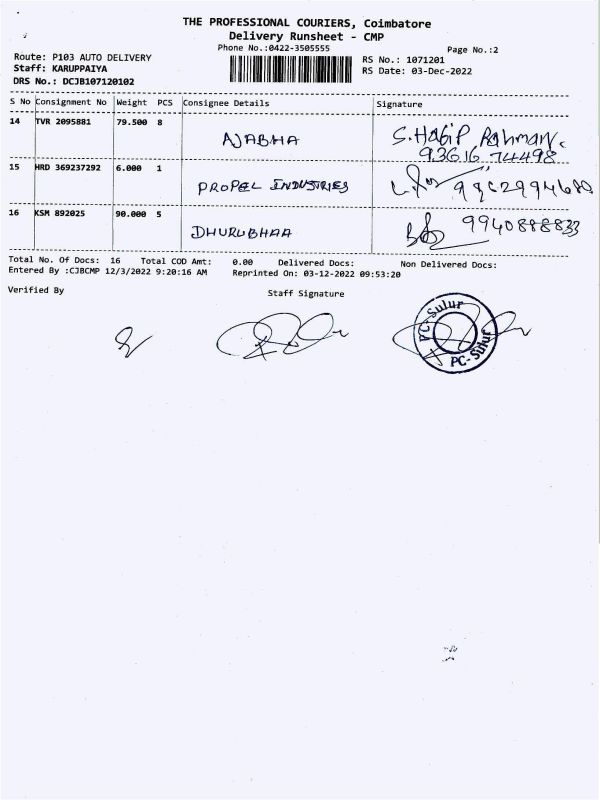 THE PROFESSIONAL COURIERS, Coimbatore
Delivery Runsheet - CMP
Phone No.:0422-3505555
Page No.:2
Route: P103 AUTO DELIVERY
RS No.: 1071201
Staff: KARUPPAIYA
RS Date: 03-Dec-2022
DRS No.: DCJB107120102
S No Consignment No Weight PCS Consignee Details Signature
14 TVR 2095881 79.500 8 AJABHA S. Habip Rahman.
93616 74498
15 HRD 369237292 6.000 1 PROPEL INDUSTRIES
16 KSM 892025 90.000 5 DHURUBHAA 9940888833
Total No. Of Docs: 16 Total COD Amt: 0.00 Delivered Docs: Non Delivered Docs:
Entered By :CJBCMP 12/3/2022 9:20:16 AM Reprinted On: 03-12-2022 09:53:20
Verified By Staff Signature
PC-Sulur
PC-Sulur